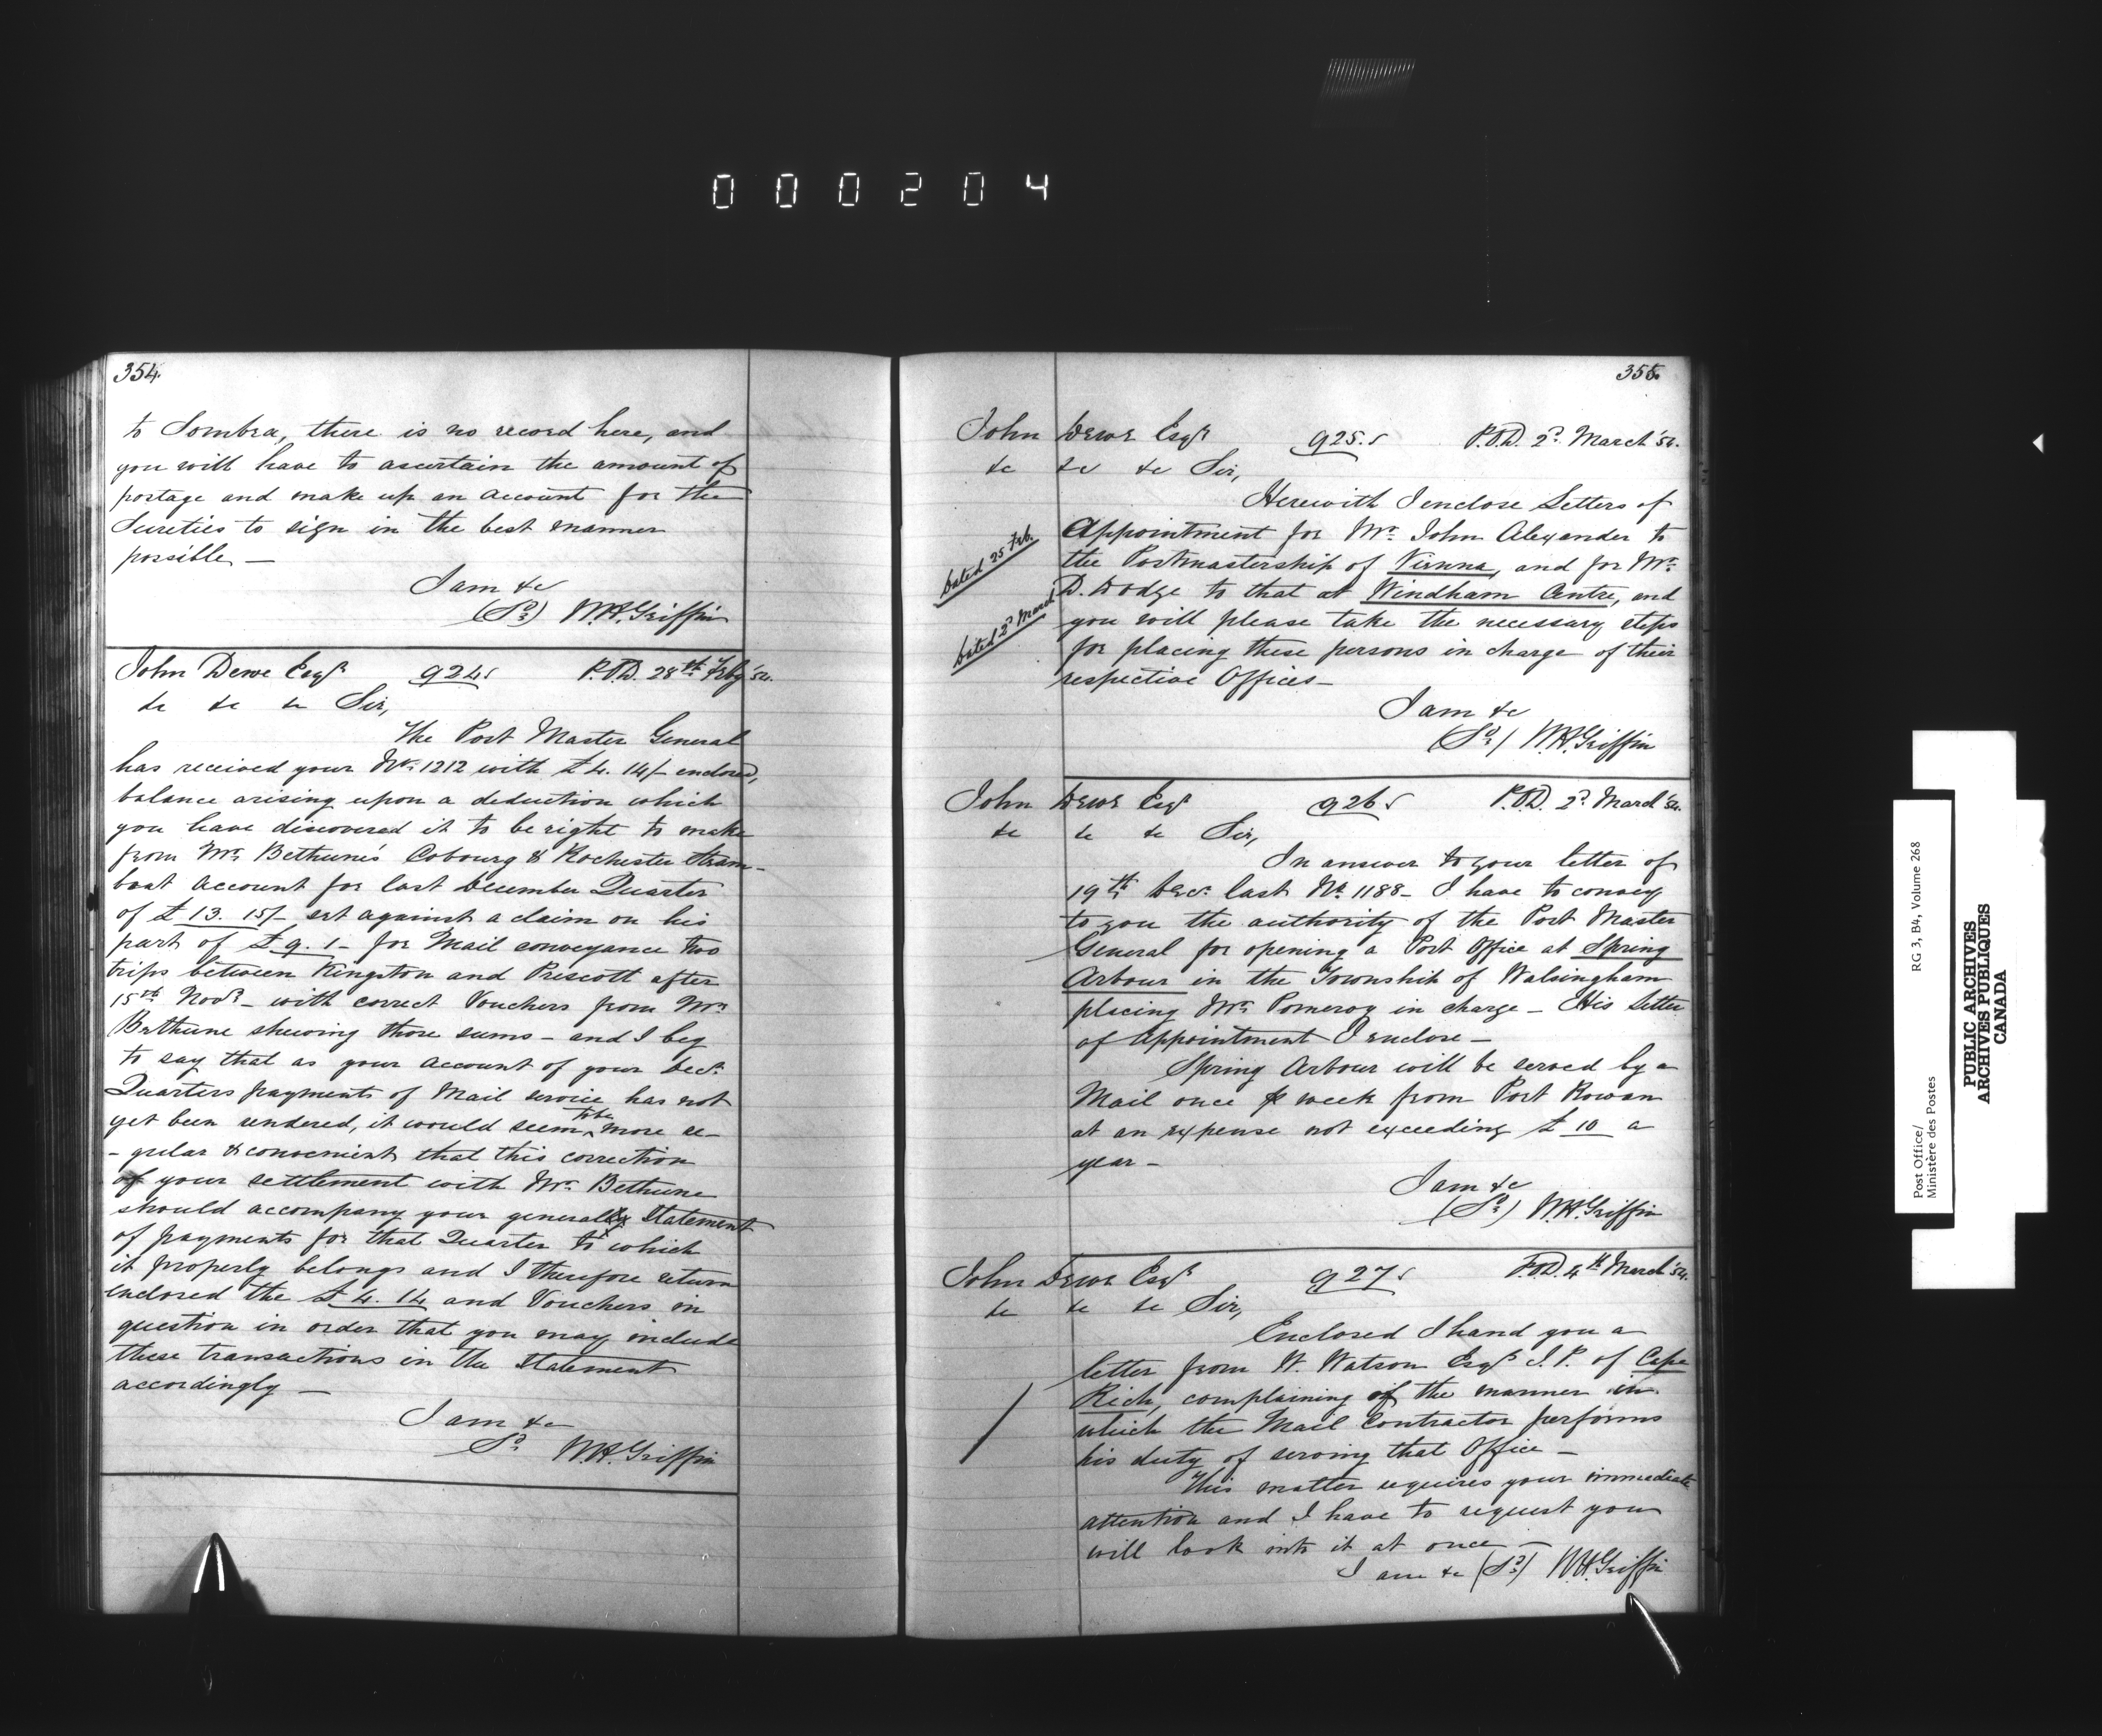 000204
354.
to Sombra, there is no record here, and
you will have to ascertain the amount of
postage and make up an account for the
Sureties to sign in the best manner
possible —
I am &c
(Sd) W.H. Griffin
John Dewe Esqr 924 P.O.D. 28th Feby '54.
&c &c &c Sir,
The Post Master General
has received your No. 1212 with £4. 14/- enclosed,
balance arising upon a deduction which
you have discovered it to be right to make
from Mr. Bethune's Cobourg & Rochester Steam-
boat account for last December Quarter
of £13. 15/- set against a claim on his
part of £9. 1 - for Mail conveyance two
trips between Kingston and Prescott after
15th Novr - with correct Vouchers from Mr
Bethune shewing those sums - and I beg
to say that as your account of your Decr.
Quarters payments of Mail service has not
yet been rendered, it would seem to be more re-
-gular & convenient that this correction
of your settlement with Mr. Bethune
should accompany your general Statement
of payments for that Quarter to which
it properly belongs and I therefore return
enclosed the £4. 14 and Vouchers in
question in order that you may include
these transactions in the Statement
accordingly —
I am &c
Sd. W.H. Griffin
355.
John Dewe Esqr 925. P.O.D. 2d March '54.
&c &c &c Sir,
Herewith I enclose Letters of
Appointment for Mr. John Alexander to
dated 25 Feb.
the Postmastership of Vienna, and for Mr.
D. Dodge to that at Windham Centre, and
dated 2d March
you will please take the necessary steps
for placing these persons in charge of their
respective Offices —
I am &c
(Sd.) W.H. Griffin
John Dewe Esqr 926 P.O.D. 2d March '54.
&c &c &c Sir,
In answer to your letter of
19th Decr. last No. 1188 - I have to convey
to you the authority of the Post Master
General for opening a Post Office at Spring
Arbour in the Township of Walsingham
placing Mr. Pomeroy in charge - His Letter
of Appointment I enclose —
Spring Arbour will be served by a
Mail once p week from Port Rowan
at an expense not exceeding £10 a
year -
I am &c
(Sd.) W.H. Griffin
John Dewe Esqr 927 P.O.D. 4th March '54.
&c &c &c Sir,
Enclosed I hand you a
letter from W. Watson Esqr J.P. of Cape
Rich, complaining of the manner in
which the Mail Contractor performs
his duty of serving that Office —
This matter requires your immediate
attention and I have to request you
will look into it at once —
I am &c (Sd.) W.H. Griffin
Post Office/ RG 3, B4, Volume 268
Ministère des Postes
PUBLIC ARCHIVES
ARCHIVES PUBLIQUES
CANADA